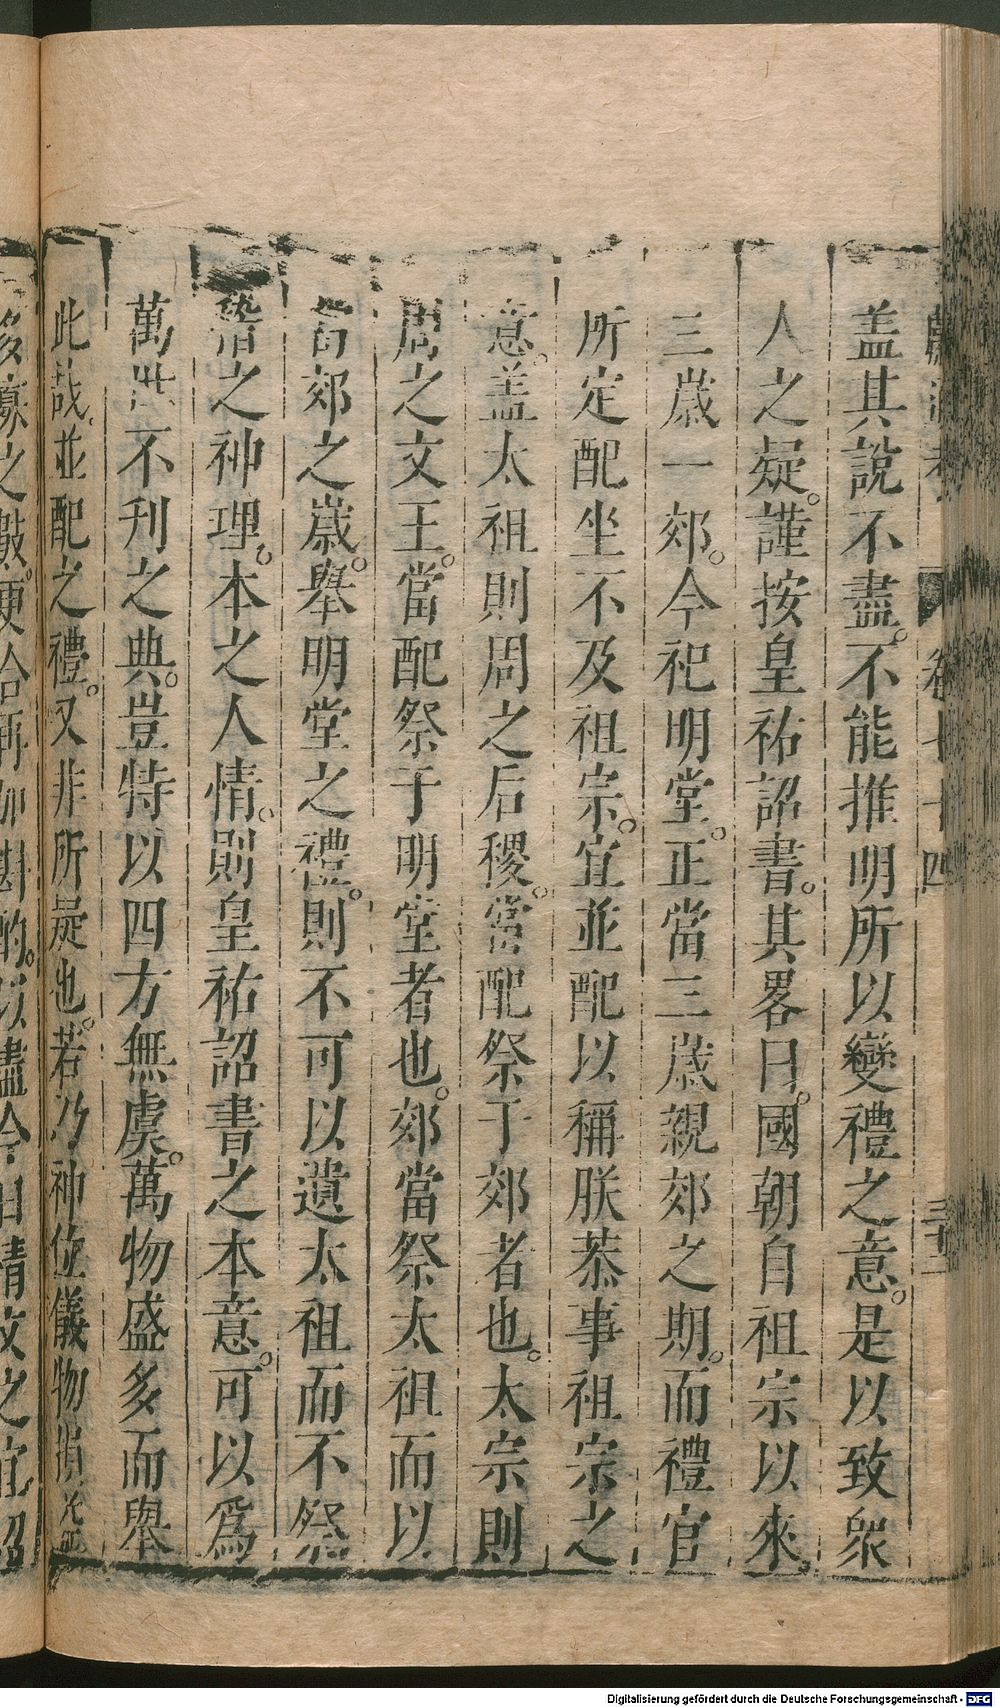 盖其說不盡。不能推明所以變禮之意。是以致眾
人之疑。謹按皇祐詔書。其畧曰。國朝自祖宗以來。
三歲一郊。今祀明堂。正當三歲親郊之期。而禮官
所定配坐不及祖宗。宜並配以稱朕恭事祖宗之
意。盖太祖則周之后稷。當配祭于郊者也。太宗則
周之文王。當配祭于明堂者也。郊當祭太祖而以
當郊之歲。舉明堂之禮。則不可以遺太祖而不祭
稽之神理。本之人情。則皇祐詔書之本意。可以為
萬世不刊之典。豈特以四方無虞。萬物盛多而舉
此哉。並配之禮。又非所疑也。若乃神位儀物損益
卷七十四
Digitalisierung gefördert durch die Deutsche Forschungsgemeinschaft - DFG